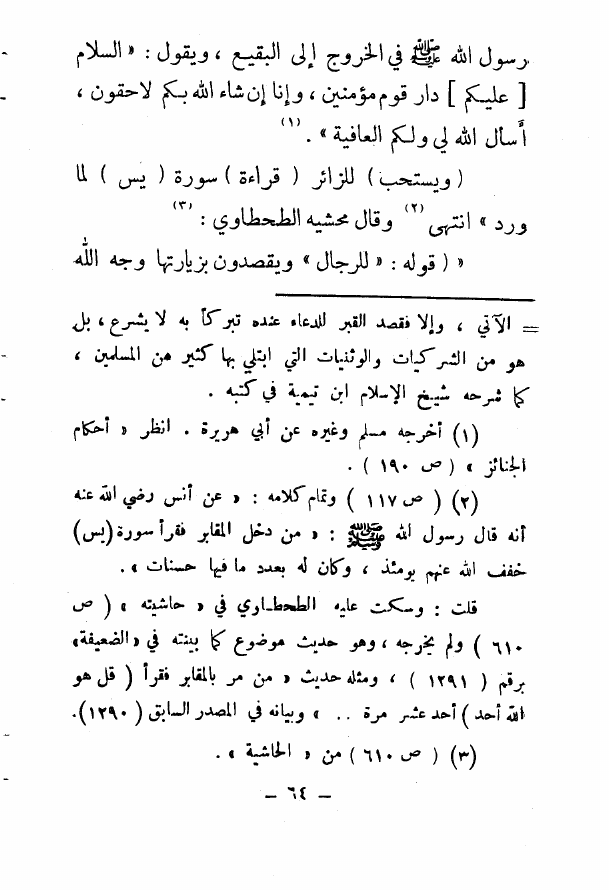 رسول الله ﷺ في الخروج إلى البقيع ، ويقول : « السلام
[ عليكم ] دار قوم مؤمنين ، وإنا إن شاء الله بكم لاحقون ،
أسأل الله لي ولكم العافية » . (١)
( ويستحب ) للزائر ( قراءة ) سورة ( يس ) لما
ورد » انتهى (٢) وقال محشيه الطحطاوي (٣) :
« ( قوله : « للرجال » ويقصدون بزيارتها وجه الله
= الآتي ، وإلا فقصد القبر للدعاء عنده تبركاً به لا يشرع ، بل
هو من الشركيات والوثنيات التي ابتلي بها كثير من المسلمين ،
كما شرحه شيخ الإسلام ابن تيمية في كتبه .
(١) أخرجه مسلم وغيره عن أبي هريرة . انظر « أحكام
الجنائز » ( ص ١٩٠ ) .
(٢) ( ص ١١٧ ) وتمام كلامه : « عن أنس رضي الله عنه
أنه قال رسول الله ﷺ : « من دخل المقابر فقرأ سورة (يس)
خفف الله عنهم يومئذ ، وكان له بعدد ما فيها حسنات » .
قلت : وسكت عليه الطحطاوي في « حاشيته » ( ص
٦١٠ ) ولم يخرجه ، وهو حديث موضوع كما بينته في «الضعيفة»
برقم ( ١٢٩١ ) ، ومثله حديث « من مر بالمقابر فقرأ ( قل هو
الله أحد ) أحد عشر مرة .. » وبيانه في المصدر السابق (١٢٩٠).
(٣) ( ص ٦١٠ ) من « الحاشية » .
– ٦٤ –